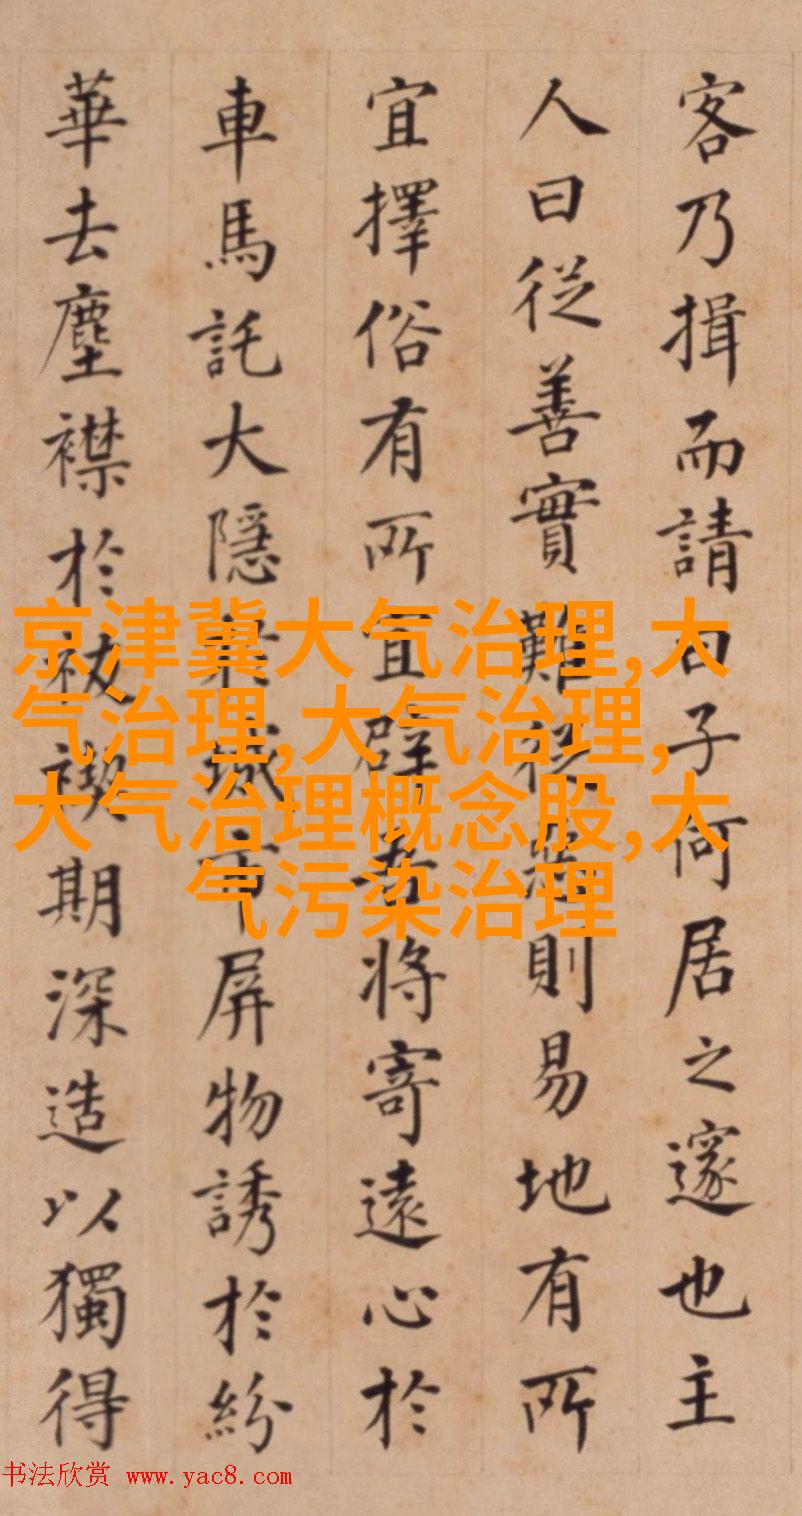 客乃揖而請曰子何居之邃也主
人曰從善實難從則易地有所
宜擇俗有所宜辟吾將寄遠心於
車馬託大隱城市屏物誘於紛
華去塵襟於祓禊期深造以獨得
京津冀大气治理,大
气治理,大气治理,
大气治理概念股,大
气污染治理
书法欣赏 www.yac8.com